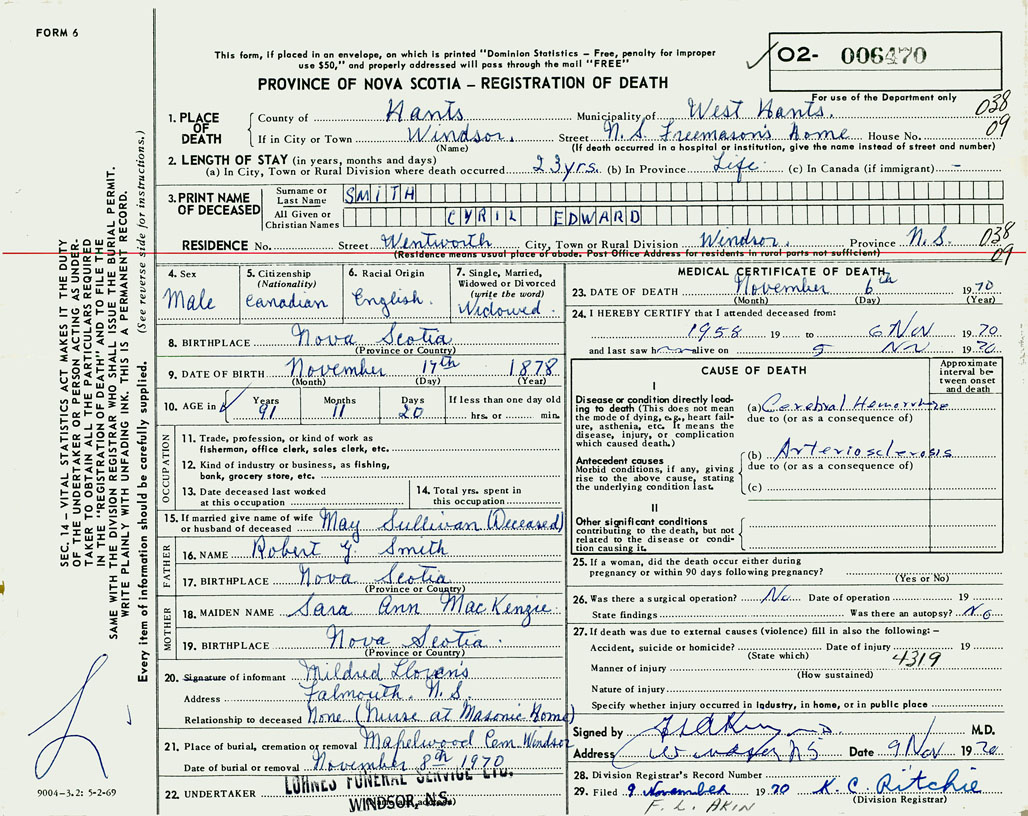 FORM 6
This form, if placed in an envelope, on which is printed "Dominion Statistics – Free, penalty for improper
use $50," and properly addressed will pass through the mail "FREE"
PROVINCE OF NOVA SCOTIA – REGISTRATION OF DEATH
02- 006470
For use of the Department only
038
09
1. PLACE OF DEATH
County of Hants Municipality of West Hants.
If in City or Town Windsor. Street N. S. Freemason's Home House No.
(Name) (If death occurred in a hospital or institution, give the name instead of street and number)
2. LENGTH OF STAY (in years, months and days)
(a) In City, Town or Rural Division where death occurred 23 yrs. (b) In Province Life. (c) In Canada (if immigrant) –
3. PRINT NAME OF DECEASED
Surname or Last Name SMITH
All Given or Christian Names CYRIL EDWARD
RESIDENCE No. Street Wentworth City, Town or Rural Division Windsor. Province N. S. 038
09
(Residence means usual place of abode. Post Office Address for residents in rural parts not sufficient)
4. Sex
Male
5. Citizenship
(Nationality)
Canadian
6. Racial Origin
English.
7. Single, Married,
Widowed or Divorced
(write the word)
Widowed.
8. BIRTHPLACE Nova Scotia
(Province or Country)
9. DATE OF BIRTH November 17th 1878
(Month) (Day) (Year)
10. AGE in Years Months Days If less than one day old
91 11 20 hrs. or min.
OCCUPATION
11. Trade, profession, or kind of work as
fisherman, office clerk, sales clerk, etc.
12. Kind of industry or business, as fishing,
bank, grocery store, etc.
13. Date deceased last worked
at this occupation
14. Total yrs. spent in
this occupation
15. If married give name of wife
or husband of deceased May Sullivan (Deceased)
FATHER
16. NAME Robert G. Smith
17. BIRTHPLACE Nova Scotia
(Province or Country)
MOTHER
18. MAIDEN NAME Sara Ann MacKenzie.
19. BIRTHPLACE Nova Scotia.
(Province or Country)
20. Signature of informant Mildred
Address Falmouth. N. S.
Relationship to deceased None (Nurse at Masonic Home)
21. Place of burial, cremation or removal Mapelwood Cem. Windsor
Date of burial or removal November 8th 1970
22. UNDERTAKER LOHNES FUNERAL SERVICE LTD.
WINDSOR, N.S.
(Name and address)
MEDICAL CERTIFICATE OF DEATH
23. DATE OF DEATH November 6th 1970
(Month) (Day) (Year)
24. I HEREBY CERTIFY that I attended deceased from:
1958 19 to 6 Nov 1970
and last saw h alive on 5 Nov 1970
CAUSE OF DEATH
Approximate interval between onset and death
I
Disease or condition directly lead-
ing to death (This does not
mean the mode of dying, e.g., heart fail-
ure, asthenia, etc. It means the
disease, injury, or complication
which caused death.)
(a) Cerebral Hemorrhage
due to (or as a consequence of)
Antecedent causes
Morbid conditions, if any, giving
rise to the above cause, stating
the underlying condition last.
(b) Arteriosclerosis
due to (or as a consequence of)
(c)
II
Other significant conditions
contributing to the death, but not
related to the disease or condi-
tion causing it.
25. If a woman, did the death occur either during
pregnancy or within 90 days following pregnancy?
(Yes or No)
26. Was there a surgical operation? No Date of operation 19
State findings Was there an autopsy? No
27. If death was due to external causes (violence) fill in also the following: –
Accident, suicide or homicide? Date of injury 19
(State which) 4319
Manner of injury
(How sustained)
Nature of injury
Specify whether injury occurred in Industry, in home, or in public place
Signed by M.D.
Address Windsor NS Date 9 Nov 1970
28. Division Registrar's Record Number
29. Filed 9 November 1970 K. C. Ritchie
(Division Registrar)
F. L. AKIN
SEC. 14 – VITAL STATISTICS ACT MAKES IT THE DUTY
OF THE UNDERTAKER OR PERSON ACTING AS UNDER-
TAKER TO OBTAIN ALL THE PARTICULARS REQUIRED
IN THE "REGISTRATION OF DEATH" AND TO FILE THE
SAME WITH THE DIVISION REGISTRAR WHO SHALL ISSUE THE BURIAL PERMIT.
WRITE PLAINLY WITH UNFADING INK. THIS IS A PERMANENT RECORD.
Every item of information should be carefully supplied. (See reverse side for instructions.)
9004-3.2: 5-2-69